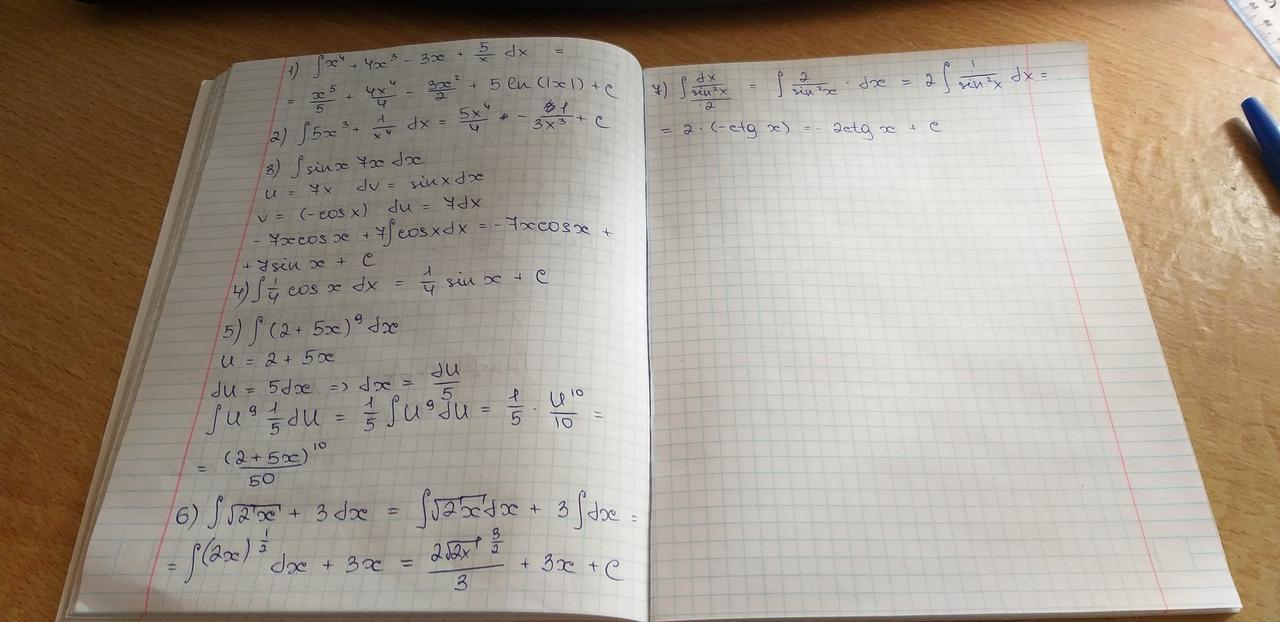 1) ∫x⁴ + 4x³ - 3x + 5/x dx =
= x⁵/5 + 4x⁴/4 - 3x²/2 + 5 ln(|x|) + c
2) ∫5x³ + 1/x⁴ dx = 5x⁴/4 - 1/3x³ + c
3) ∫sinx 7x dx
u = 7x dv = sinx dx
v = (-cosx) du = 7dx
- 7xcosx + 7∫cosxdx = - 7xcosx +
+ 7sin x + c
4) ∫1/4 cos x dx = 1/4 sin x + c
5) ∫(2 + 5x)⁹ dx
u = 2 + 5x
du = 5dx => dx = du/5
∫u⁹ 1/5 du = 1/5 ∫u⁹ du = 1/5 · u¹⁰/10 =
= (2+5x)¹⁰/50
6) ∫√2x + 3 dx = ∫√2x dx + 3∫dx =
= ∫(2x)^1/2 dx + 3x = 2√2x^3/2 / 3 + 3x + c
7) ∫dx/(sin²x/2) = ∫2/sin²x · dx = 2∫1/sin²x dx =
= 2 · (-ctg x) = - 2ctg x + c